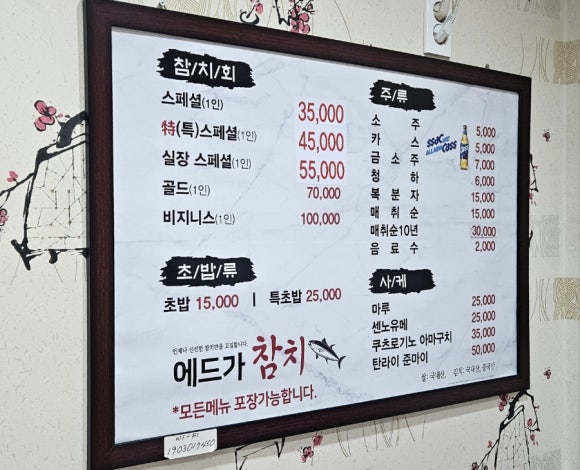 참/치/회
스페셜(1인) 35,000
特(특)스페셜(1인) 45,000
실장 스페셜(1인) 55,000
골드(1인) 70,000
비지니스(1인) 100,000
초/밥/류
초밥 15,000 | 특초밥 25,000
언제나 신선한 참치만을 고집합니다.
에드가 참치
*모든메뉴 포장가능합니다.
주/류
소 주 5,000
카 스 5,000
금 소 주 7,000
청 하 6,000
복 분 자 15,000
매 취 순 15,000
매취순10년 30,000
음 료 수 2,000
CASS
ALL NEW CASS
사/케
마루 25,000
센노유메 25,000
쿠츠로기노 아마구치 35,000
탄라이 준마이 50,000
쌀: 국내산, 김치: 국내산,중국산
Wi-Fi